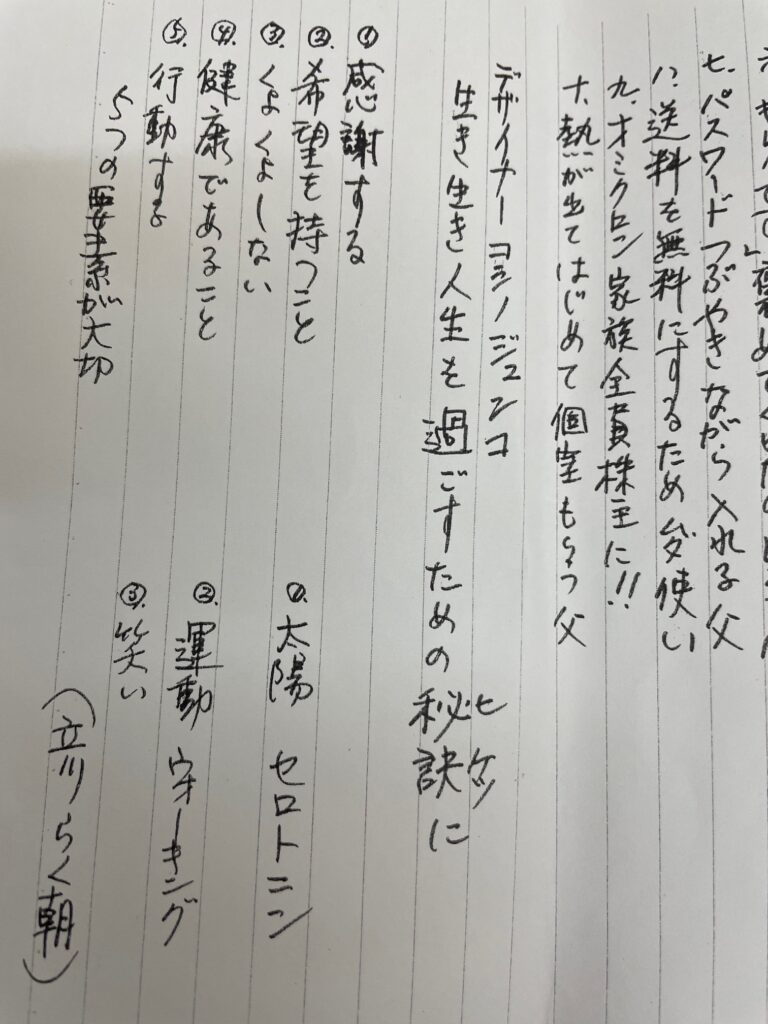 七、パスワードつぶやきながら入れる父
八、送料を無料にするためムダ使い
九、オミクロン家族全員株主に!!
十、熱が出てはじめて個室もらう父
デザイナー コシノジュンコ
生き生き人生を過ごすための秘訣に
ヒケツ
①. 感謝する
②. 希望を持つこと
③. くよくよしない
④. 健康であること
⑤. 行動する
5つの要素が大切
①. 太陽 セロトニン
②. 運動 ウォーキング
③. 笑い
(立川らく朝)